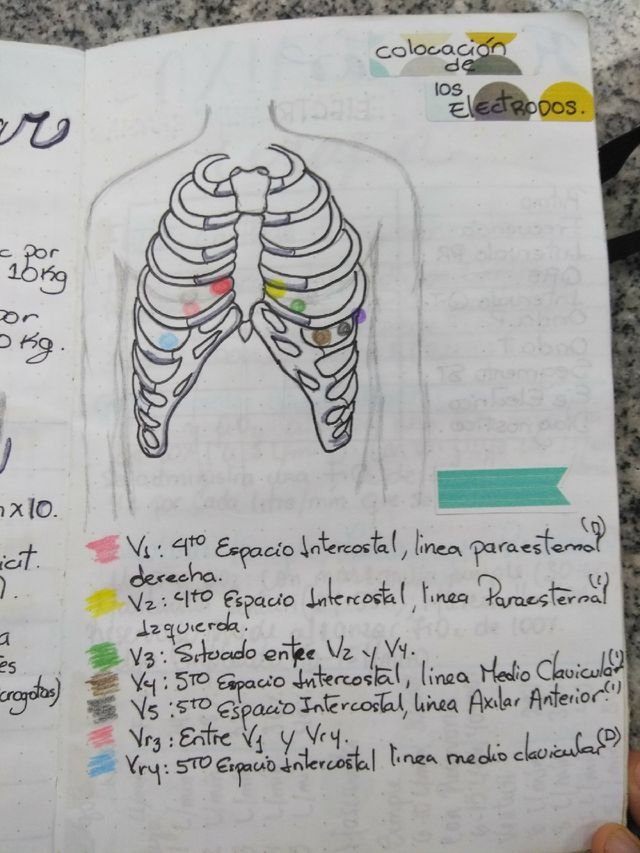 colocación
de
los
Electrodos.
ar
c por
10Kg
por
0 Kg.
nx10.
icit.
a
es
crogotas)
V1: 4to Espacio Intercostal, linea paraesternal (D)
derecha.
V2: 4to Espacio Intercostal, linea Paraesternal (I)
Izquierda.
V3: Situado entre V2 y V4.
V4: 5to Espacio Intercostal, linea Medio Clavicular (I)
V5: 5to Espacio Intercostal, linea Axilar Anterior. (I)
Vr3: Entre V1 y Vr4.
Vr4: 5to Espacio Intercostal linea medio clavicular (D)